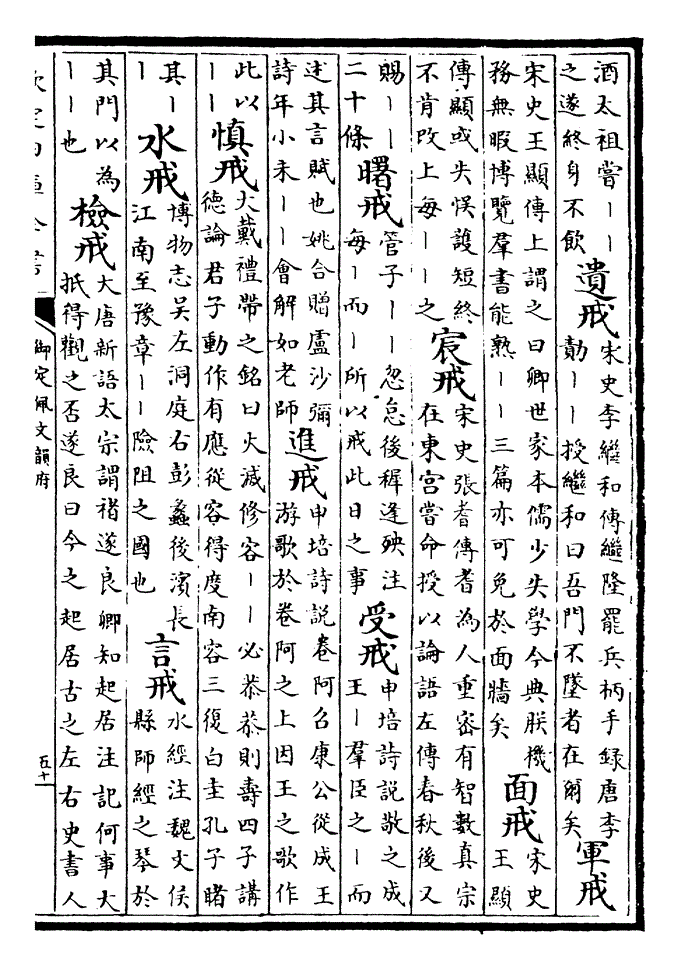 酒太祖嘗丨丨
之遂終身不飲
遺戒
宋史李繼和傳繼隆罷兵柄手録唐李
勣丨丨授繼和曰吾門不墜者在爾矣
軍戒
宋史王顯傳上謂之曰卿世家本儒少失學今典朕機
務無暇博覽羣書能熟丨丨三篇亦可免於面牆矣
面戒
宋史
王顯
傳顯或失悞護短終
不肯改上每丨丨之
宸戒
宋史張耆傳耆為人重密有智數真宗
在東宫嘗命授以論語左傳春秋後又
賜丨丨
二十條
曙戒
管子丨丨忽怠後稺逢殃注
每丨而丨所以戒此日之事
受戒
申培詩説敬之成
王丨羣臣之丨而
述其言賦也姚合贈盧沙彌
詩年小未丨丨會解如老師
進戒
申培詩説卷阿召康公從成王
游歌於卷阿之上因王之歌作
此以
丨丨
慎戒
大戴禮帶之銘曰火滅修容丨丨必恭恭則壽四子講
德論君子動作有應從容得度南容三復白圭孔子睹
其丨
丨
水戒
博物志吴左洞庭右彭蠡後濱長
江南至豫章丨丨險阻之國也
言戒
水經注魏文侯
縣師經之琴於
其門以為
丨丨也
檢戒
大唐新語太宗謂禇遂良卿知起居注記何事大
抵得觀之否遂良曰今之起居古之左右史書人
欽定四庫全書
御定佩文韻府
五十